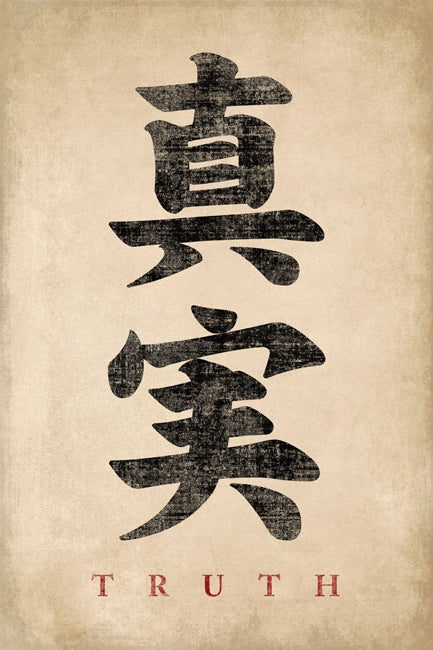 真実
TRUTH